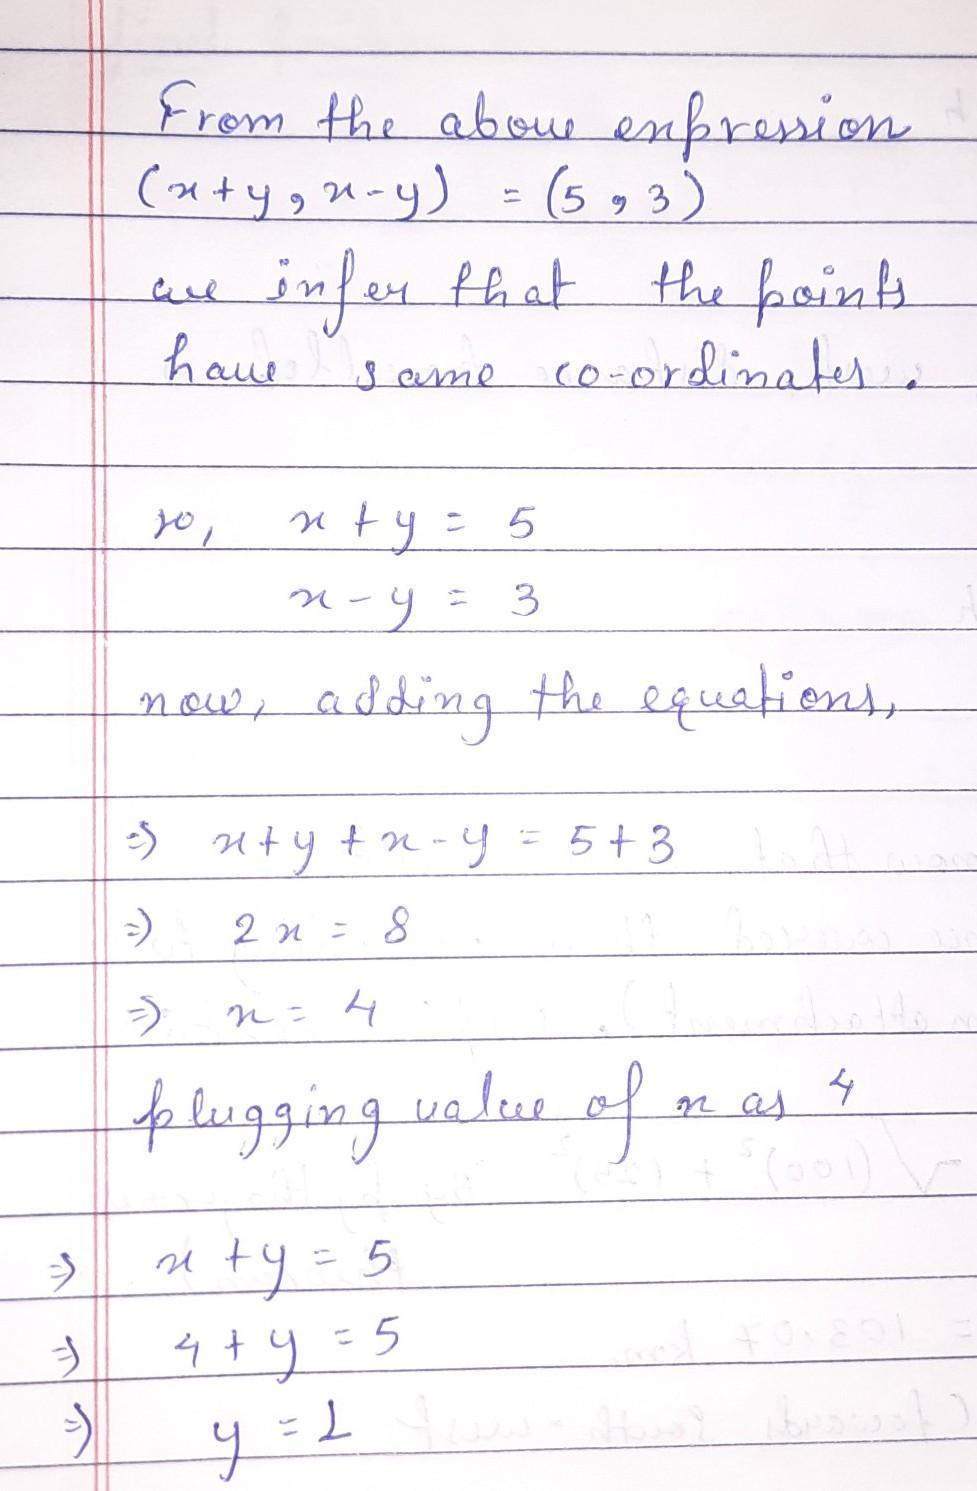 From the above expression
(x+y, x-y) = (5, 3)
we infer that the points
have same co-ordinates.
so, x + y = 5
x - y = 3
now, adding the equations,
⇒ x+y + x-y = 5+3
⇒ 2x = 8
⇒ x = 4
plugging value of x as 4
⇒ x + y = 5
⇒ 4 + y = 5
⇒ y = 1